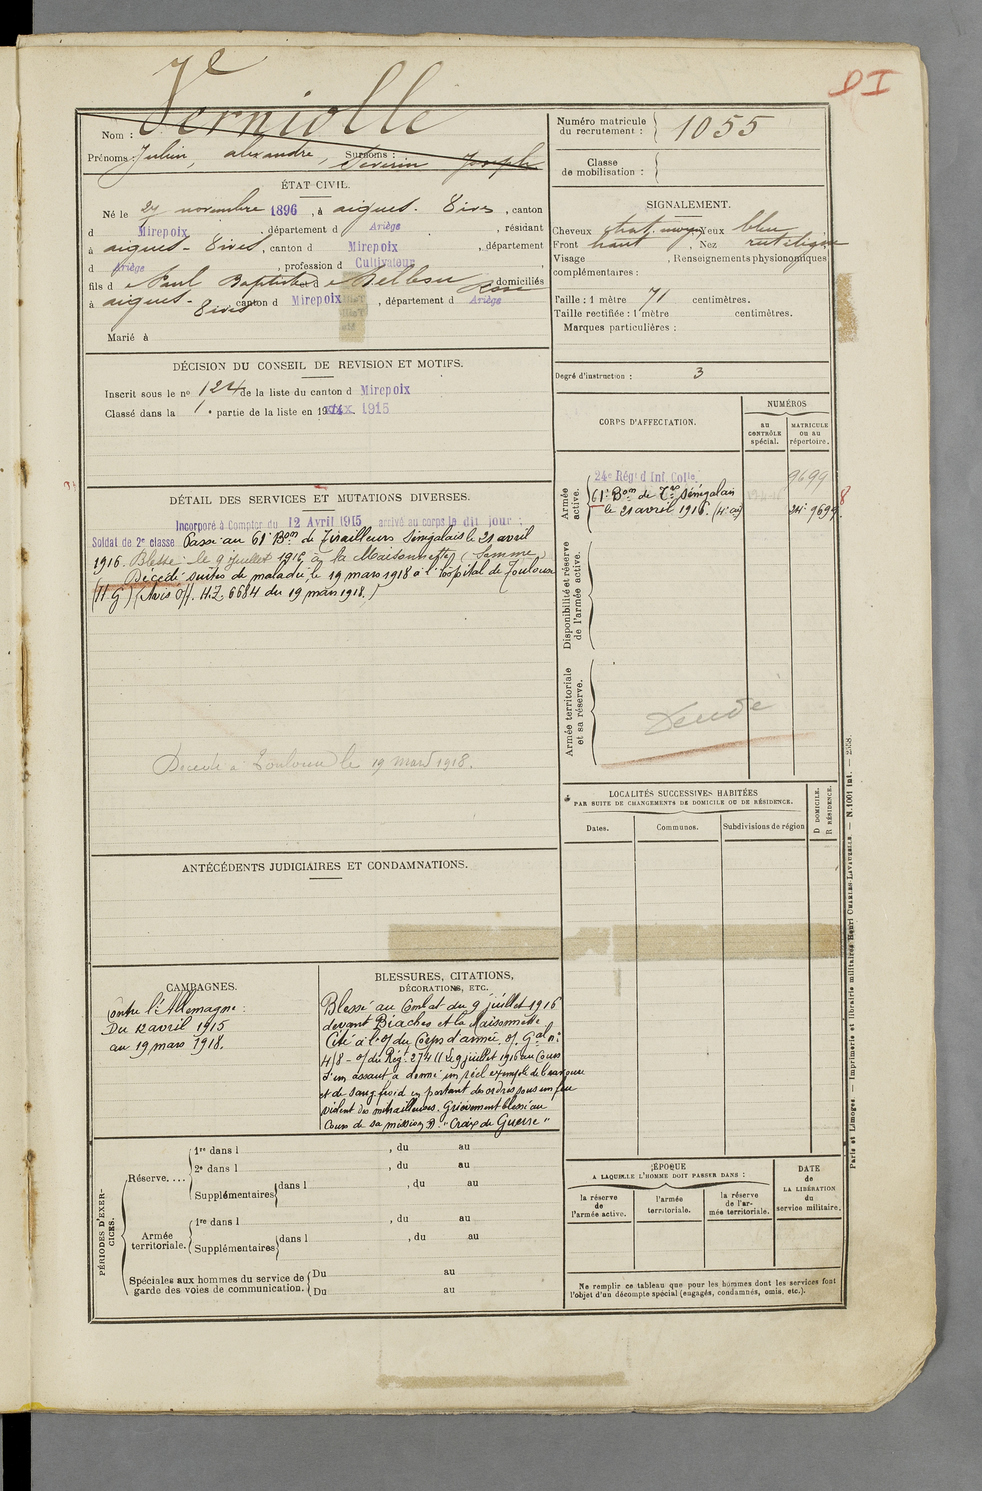 DI
Nom : Verniolle
Prénoms : Julien, alexandre, Surnoms : Séverin Joseph
ÉTAT CIVIL.
Né le 24 novembre 1896, à aigues-Vives, canton
d Mirepoix, département d Ariège, résidant
à aigues-Vives, canton d Mirepoix, département
d Ariège, profession d Cultivateur,
fils d e Paul Baptiste et d e Rose domiciliés
à aigues-Vives canton d Mirepoix, département d Ariège
Marié à
DÉCISION DU CONSEIL DE REVISION ET MOTIFS.
Inscrit sous le no 124 de la liste du canton d Mirepoix
Classé dans la 1e partie de la liste en 19 1915
DÉTAIL DES SERVICES ET MUTATIONS DIVERSES.
Incorporé à Compter du 12 Avril 1915 arrivé au corps le dit jour :
Soldat de 2e classe Passé au 61e Bon de Tirailleurs Sénégalais le 21 avril
1916. Blessé le 9 juillet 1916 à la Maisonnette (Somme)
Décédé suites de maladie le 19 mars 1918 à l'hôpital de Toulouse
(Hte G) (Avis off. H.Z. 6684 du 19 mars 1918.)
Décédé à Toulouse le 19 mars 1918.
ANTÉCÉDENTS JUDICIAIRES ET CONDAMNATIONS.
CAMPAGNES.
Contre l'Allemagne :
Du 12 avril 1915
au 19 mars 1918.
BLESSURES, CITATIONS,
DÉCORATIONS, ETC.
Blessé au Combat du 9 juillet 1916
devant Biaches et la Maisonnette
Cité à l'o/ du Corps d'armée o/ Gal n°
418 - o/ du Régt 274 "Le 9 juillet 1916 au Cours
d'un assaut a donné un réel exemple de bravoure
et de sang froid en portant des ordres sous un feu
violent des mitrailleuses. Grièvement blessé au
Cours de sa mission". "Croix de Guerre"
PÉRIODES D'EXERCICES.
Réserve....
1re dans l , du au
2e dans l , du au
Supplémentaires dans l , du au
Armée territoriale.
1re dans l , du au
Supplémentaires dans l , du au
Spéciales aux hommes du service de garde des voies de communication.
Du au
Du au
Numéro matricule du recrutement : 1055
Classe de mobilisation :
SIGNALEMENT.
Cheveux chat. moyen Yeux bleu
Front haut, Nez rectiligne
Visage , Renseignements physionomiques
complémentaires :
Taille : 1 mètre 71 centimètres.
Taille rectifiée : 1 mètre centimètres.
Marques particulières :
Degré d'instruction : 3
CORPS D'AFFECTATION.
NUMÉROS
au CONTRÔLE spécial.
MATRICULE ou au répertoire.
Armée active.
24e Régt d'Inf. Colle 9699
61e Bon de Trs Sénégalais
le 21 avril 1916. 9699
8
Disponibilité et réserve de l'armée active.
Armée territoriale et sa réserve.
Décédé
LOCALITÉS SUCCESSIVES HABITÉES
PAR SUITE DE CHANGEMENTS DE DOMICILE OU DE RÉSIDENCE.
Dates.
Communes.
Subdivisions de région
D DOMICILE.
R RÉSIDENCE.
ÉPOQUE
A LAQUELLE L'HOMME DOIT PASSER DANS :
la réserve de l'armée active.
l'armée territoriale.
la réserve de l'armée territoriale.
DATE de LA LIBÉRATION du service militaire.
Ne remplir ce tableau que pour les hommes dont les services font
l'objet d'un décompte spécial (engagés, condamnés, omis, etc.).
Paris et Limoges. — Imprimerie et librairie militaires Henri CHARLES-LAVAUZELLE. — N. 1001 int. —